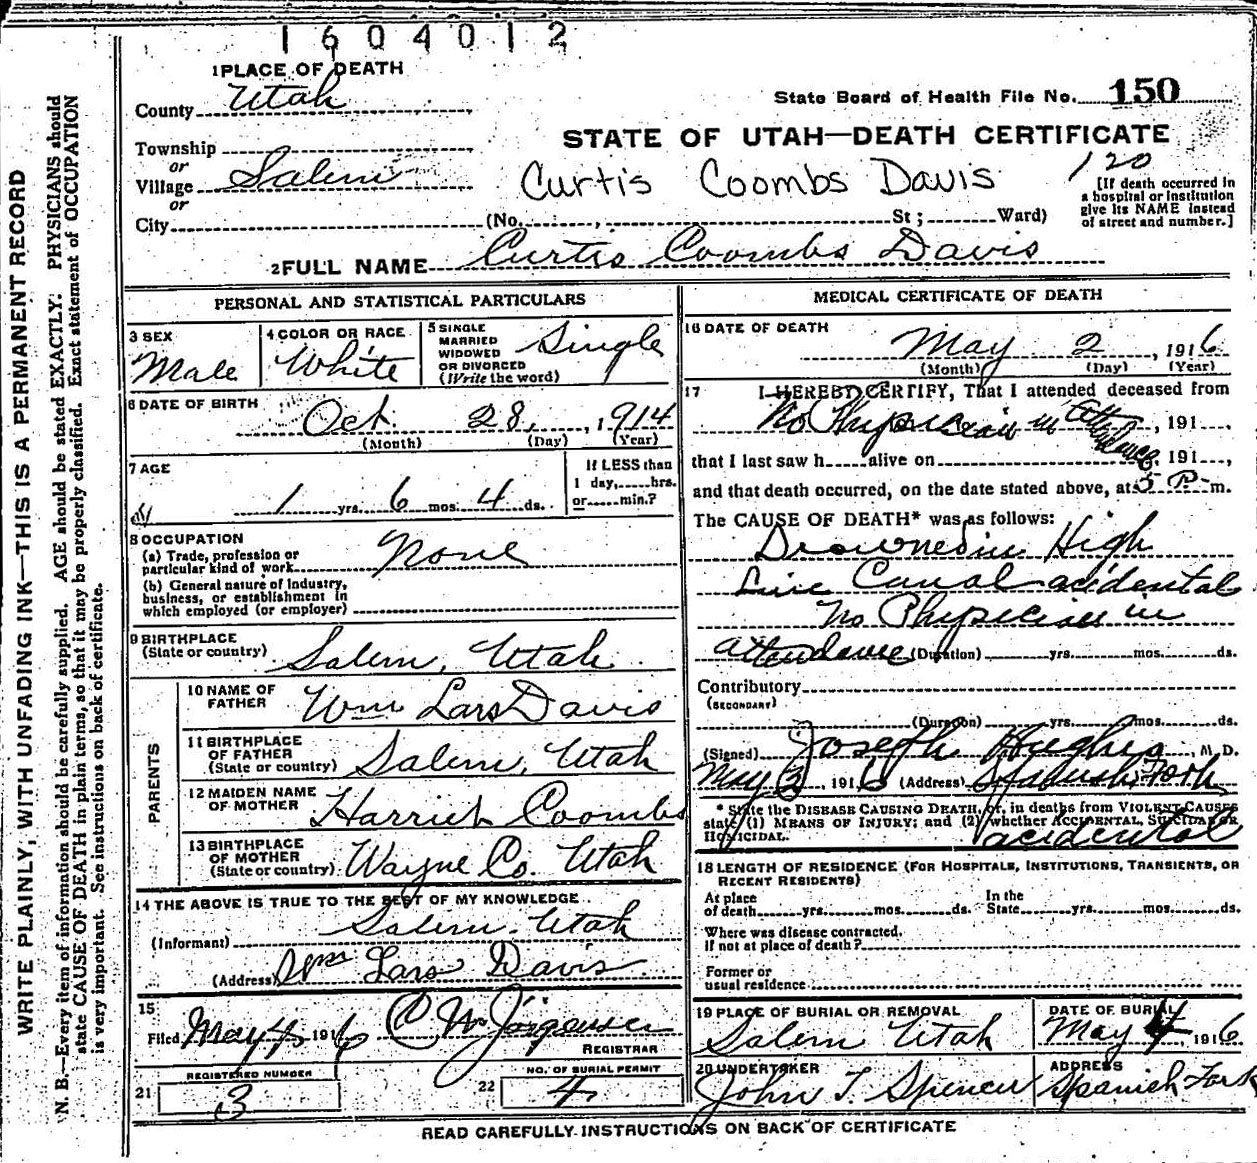 1604012
1 PLACE OF DEATH
County Utah
State Board of Health File No. 150
STATE OF UTAH—DEATH CERTIFICATE
Township
or
Village Salem
Curtis Coombs Davis
120
[If death occurred in a hospital or institution give its NAME instead of street and number.]
or
City (No. , St ; Ward)
2 FULL NAME Curtis Coombs Davis
PERSONAL AND STATISTICAL PARTICULARS
3 SEX Male
4 COLOR OR RACE White
5 SINGLE MARRIED WIDOWED OR DIVORCED (Write the word) Single
6 DATE OF BIRTH Oct. 28, , 1914
(Month) (Day) (Year)
7 AGE
1 yrs. 6 mos. 4 ds.
If LESS than 1 day, hrs. or min.?
8 OCCUPATION
(a) Trade, profession or particular kind of work None
(b) General nature of industry, business, or establishment in which employed (or employer)
9 BIRTHPLACE
(State or country) Salem, Utah
PARENTS
10 NAME OF FATHER Wm Lars Davis
11 BIRTHPLACE OF FATHER (State or country) Salem, Utah
12 MAIDEN NAME OF MOTHER Harriet Coombs
13 BIRTHPLACE OF MOTHER (State or country) Wayne Co. Utah
14 THE ABOVE IS TRUE TO THE BEST OF MY KNOWLEDGE
(Informant) Salem. Utah
(Address) Wm Lars Davis
15
Filed May 4, 1916 C W Jörgensen
REGISTRAR
REGISTERED NUMBER
21 3
NO. OF BURIAL PERMIT
22 4
MEDICAL CERTIFICATE OF DEATH
16 DATE OF DEATH
May 2 , 1916
(Month) (Day) (Year)
17 I HEREBY CERTIFY, That I attended deceased from
No Physician in attendance , 191 ,
that I last saw h alive on , 191 ,
and that death occurred, on the date stated above, at 5 P. m.
The CAUSE OF DEATH* was as follows:
Drowned in High
Line Canal acidental
No Physician in
attendance (Duration) yrs. mos. ds.
Contributory
(SECONDARY)
(Duration) yrs. mos. ds.
(Signed) Joseph Hughes , M. D.
May 2 , 1916 (Address) Spanish Fork
* State the DISEASE CAUSING DEATH, or, in deaths from VIOLENT CAUSES
state (1) MEANS OF INJURY; and (2) whether ACCIDENTAL, SUICIDAL OR
HOMICIDAL. acidental
18 LENGTH OF RESIDENCE (FOR HOSPITALS, INSTITUTIONS, TRANSIENTS, OR
RECENT RESIDENTS)
At place of death yrs. mos. ds. In the State yrs. mos. ds.
Where was disease contracted,
if not at place of death?
Former or
usual residence
19 PLACE OF BURIAL OR REMOVAL
Salem Utah
DATE OF BURIAL
May 4, 1916
20 UNDERTAKER
John T. Spencer
ADDRESS
Spanish Fork
READ CAREFULLY INSTRUCTIONS ON BACK OF CERTIFICATE
WRITE PLAINLY, WITH UNFADING INK—THIS IS A PERMANENT RECORD
N. B.—Every item of information should be carefully supplied. AGE should be stated EXACTLY. PHYSICIANS should
state CAUSE OF DEATH in plain terms, so that it may be properly classified. Exact statement of OCCUPATION
is very important. See instructions on back of certificate.